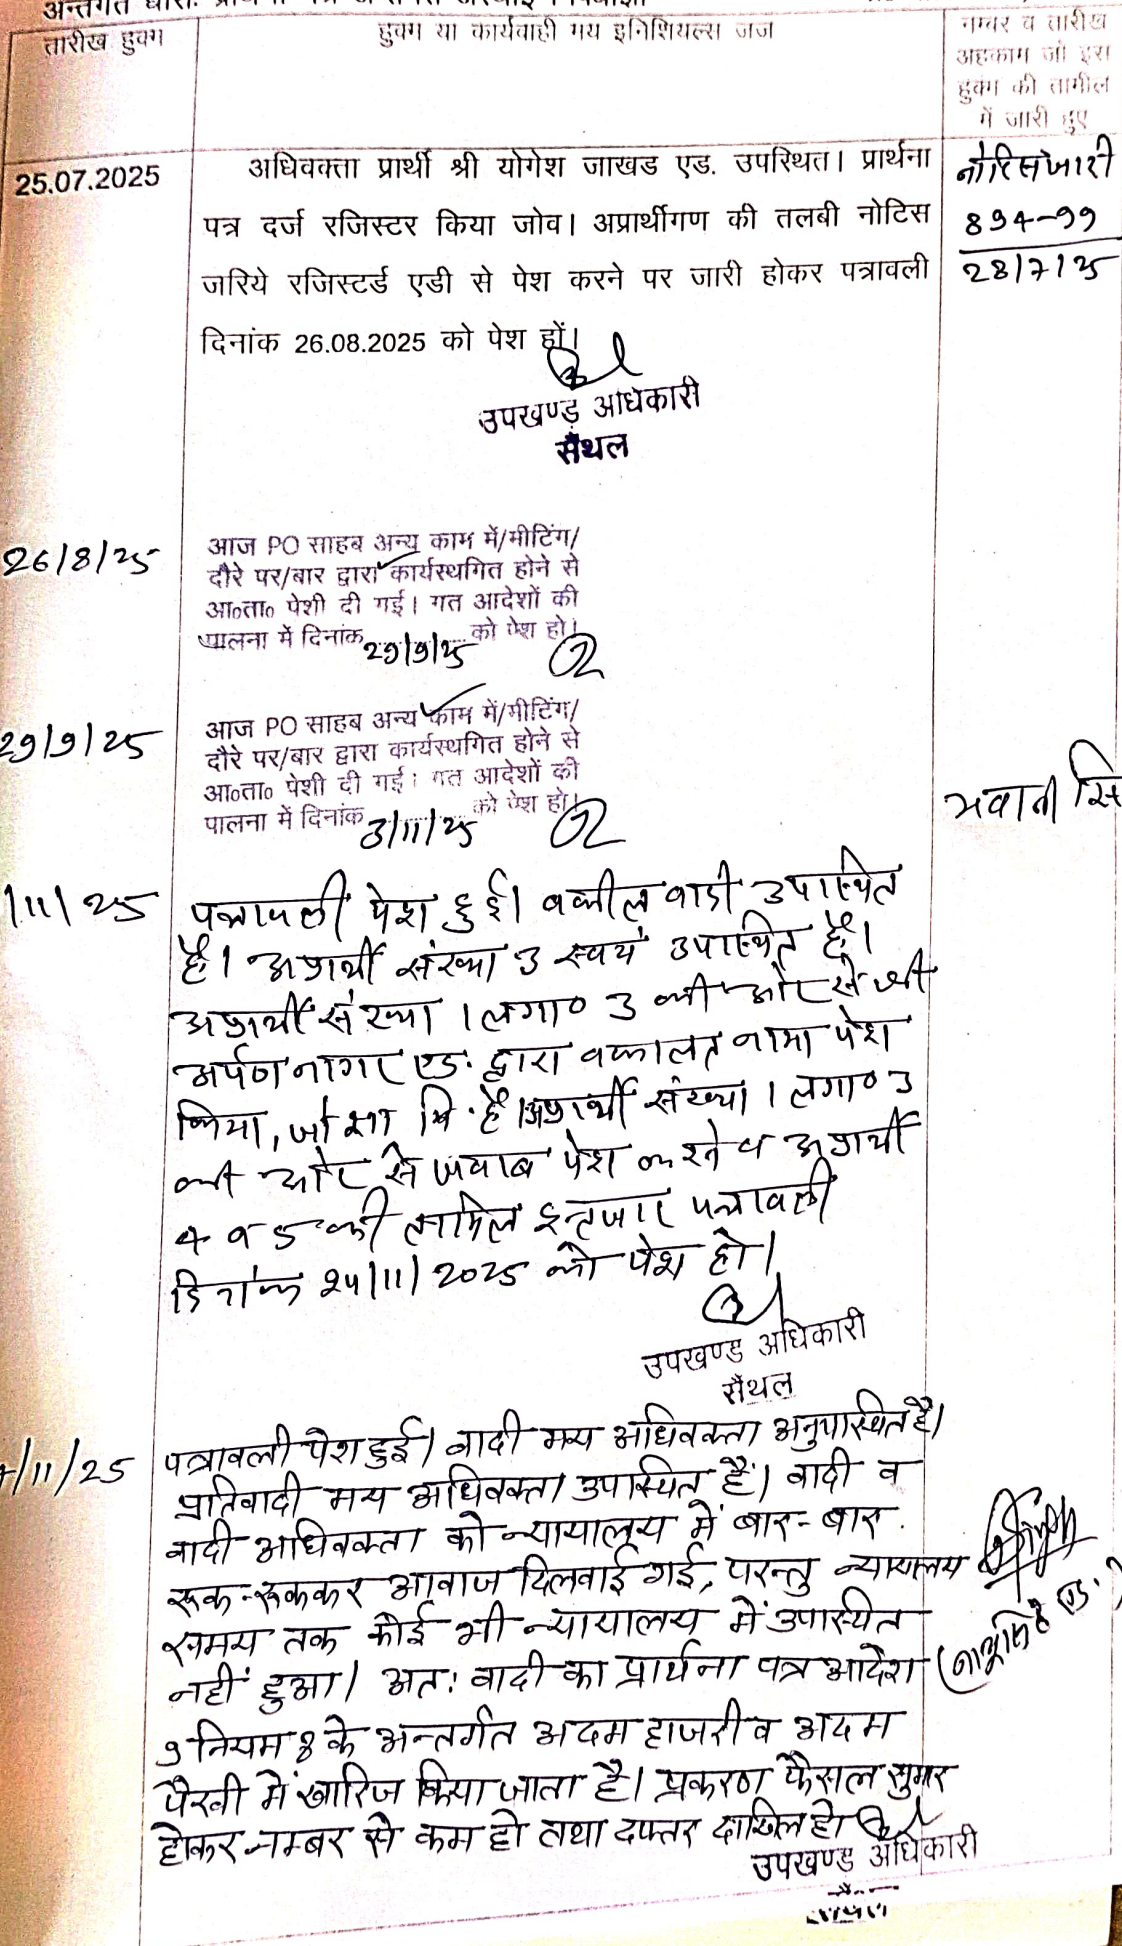 तारीख हुक्म
हुक्म या कार्यवाही मय इनिशियल्स जज
नम्बर व तारीख
अहकाम जो इस
हुक्म की तामील
में जारी हुए
25.07.2025
अधिवक्ता प्रार्थी श्री योगेश जाखड एड. उपस्थित। प्रार्थना
पत्र दर्ज रजिस्टर किया जोव। अप्रार्थीगण की तलबी नोटिस
जरिये रजिस्टर्ड एडी से पेश करने पर जारी होकर पत्रावली
दिनांक 26.08.2025 को पेश हों।
नोटिस जारी
894-99
28/7/25
उपखण्ड अधिकारी
सैंथल
26/8/25
आज PO साहब अन्य काम में/मीटिंग/
दौरे पर/बार द्वारा कार्यस्थगित होने से
आ०ता० पेशी दी गई। गत आदेशों की
पालना में दिनांक 29/9/25 को पेश हो।
29/9/25
आज PO साहब अन्य काम में/मीटिंग/
दौरे पर/बार द्वारा कार्यस्थगित होने से
आ०ता० पेशी दी गई। गत आदेशों की
पालना में दिनांक 3/11/25 को पेश हो।
भवानी सि
/11/25
पत्रावली पेश हुई। वकील वादी उपस्थित
है। अप्रार्थी संख्या 3 स्वयं उपस्थित है।
अप्रार्थी संख्या 1 लगा० 3 की ओर से श्री
अर्पण नागर एड. द्वारा वकालत नामा पेश
किया, जो शा मि. है। अप्रार्थी संख्या 1 लगा० 3
की ओर से जवाब पेश करने व अप्रार्थी
4 व 5 की तामिल इन्तजार पत्रावली
दिनांक 24/11/2025 को पेश हो।
उपखण्ड अधिकारी
सैंथल
/11/25
पत्रावली पेश हुई। वादी मय अधिवक्ता अनुपास्थित है।
प्रतिवादी मय अधिवक्ता उपास्थित हैं। वादी व
वादी अधिवक्ता को न्यायालय में बार-बार
रूक-रूककर आवाज दिलवाई गई, परन्तु न्यायालय
समय तक कोई भी न्यायालय में उपास्थित
नहीं हुआ। अत: वादी का प्रार्थना पत्र आदेश
9 नियम 8 के अन्तर्गत अदम हाजरी व अदम
पैरवी में खारिज किया जाता है। प्रकरण फैसल सुमार
होकर नम्बर से कम हो तथा दफ्तर दाखिल हो
उपखण्ड अधिकारी
सैंथल